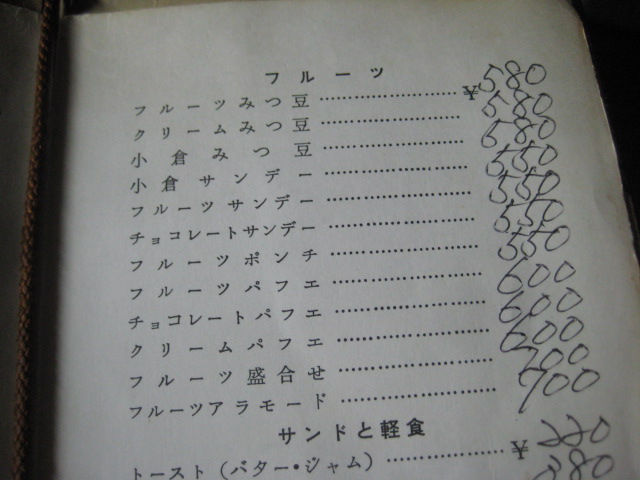 フルーツ
フルーツみつ豆 ……………… ¥580
クリームみつ豆 ……………… 580
小倉みつ豆 ……………… 580
小倉サンデー ……………… 550
フルーツサンデー ……………… 550
チョコレートサンデー ……………… 550
フルーツポンチ ……………… 550
フルーツパフエ ……………… 600
チョコレートパフエ ……………… 600
クリームパフエ ……………… 600
フルーツ盛合せ ……………… 700
フルーツアラモード ……………… 700
サンドと軽食
トースト(バター・ジャム) ……………… ¥220